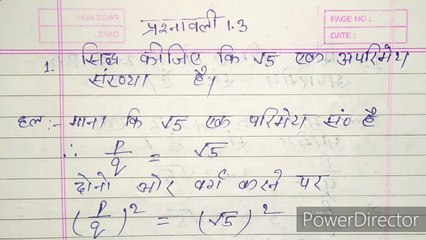 प्रश्नावली 1.3
PAGE NO:
DATE:
1. सिद्ध कीजिए कि √5 एक अपरिमेय
संख्या है।
हलः- माना कि √5 एक परिमेय सं० है
∴ p/q = √5
दोनो ओर वर्ग करने पर
(p/q)² = (√5)²
PowerDirector